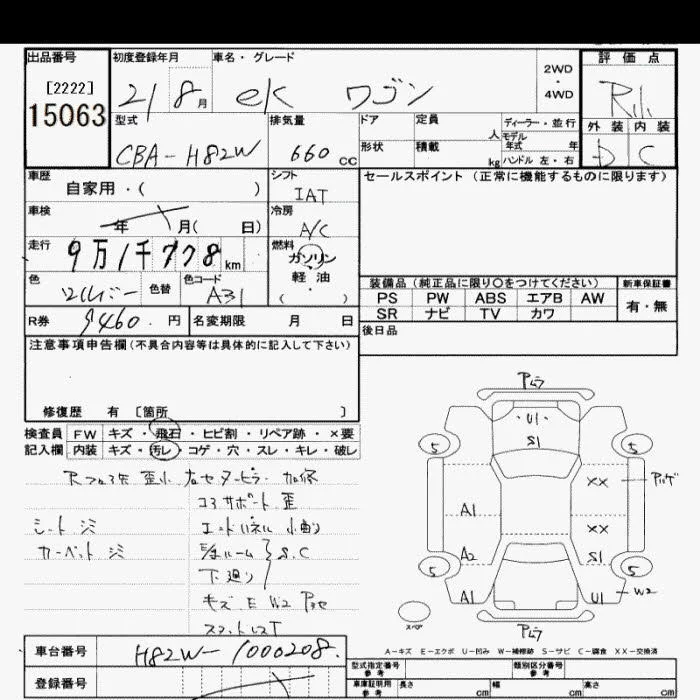 出品番号
[2222]
15063
初度登録年月
21 8月
車名・グレード
ek ワゴン
2WD
・
4WD
評価点
R
外装 内装
D C
型式
CBA-H82W
排気量
660cc
ドア
定員
人
ディーラー・並行
モデル
年式 年
形状
積載
kg
ハンドル 左・右
車歴
自家用・( )
シフト
IAT
セールスポイント (正常に機能するものに限ります)
車検
年 月( 日)
冷房
A/C
走行
9万1千778km
燃料
ガソリン
軽油
・
( )
色
シルバー
色替
色コード
A31
装備品 (純正品に限り○をつけてください)
新車保証書
PS PW ABS エアB AW
有・無
SR ナビ TV カワ
R券
9460.円
名変期限 月 日
後日品
注意事項申告欄(不具合内容等は具体的に記入して下さい)
修復歴 有 〔箇所 〕
検査員 FW キズ・飛石・ヒビ割・リペア跡・×要
記入欄 内装 キズ・汚レ・コゲ・穴・スレ・キレ・破レ
コアサポート 歪
シートシミ
エンドパネル 小曲り
カーペットシミ
ルーム S.C
下廻り
キズ E W2
アムラ
U1
S1
5
5
××
A1
××
A2
S1
5
5
A1
U1
W2
スペア
アムラ
A-キズ E-エクボ U-凹み W-補修跡 S-サビ C-腐食 XX-交換済
車台番号
H82W-1000208.
登録番号
型式指定番号
参考
類別区分番号
参考
車庫証明用
参考
長さ cm
幅 cm
高さ cm